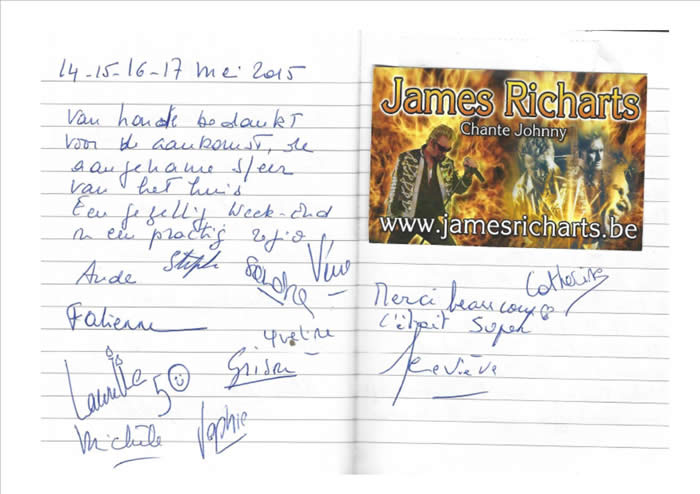 14-15-16-17 mei 2015
Van harte bedankt
voor de aankomst, de
aangename sfeer
van het huis
Een gezellig week-end
in een prachtig regio
Aude Steph Sandra
Fabienne
Yveline
Laurette 50
Michèle Sophie
James Richarts
Chante Johnny
www.jamesricharts.be
Catherine
Merci beaucoup
c'était super
Geneviève